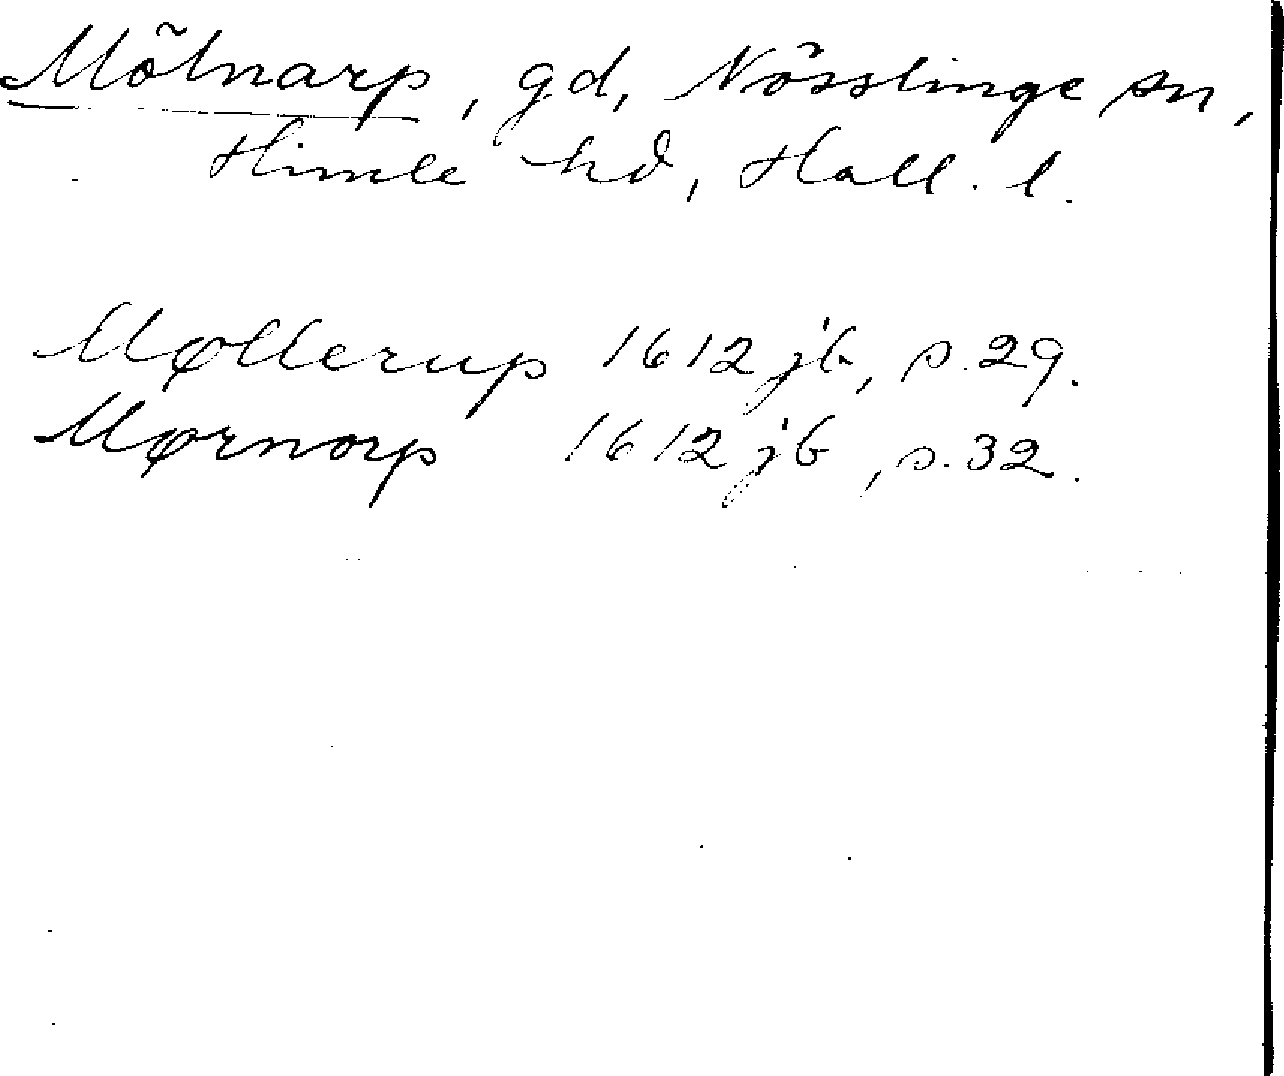 Mölnarp, gd, Nösslinge sn,
Himle hd, Hall. l.
Møllerup 1612 jb, s. 29.
Mørnorp 1612 jb, s. 32.